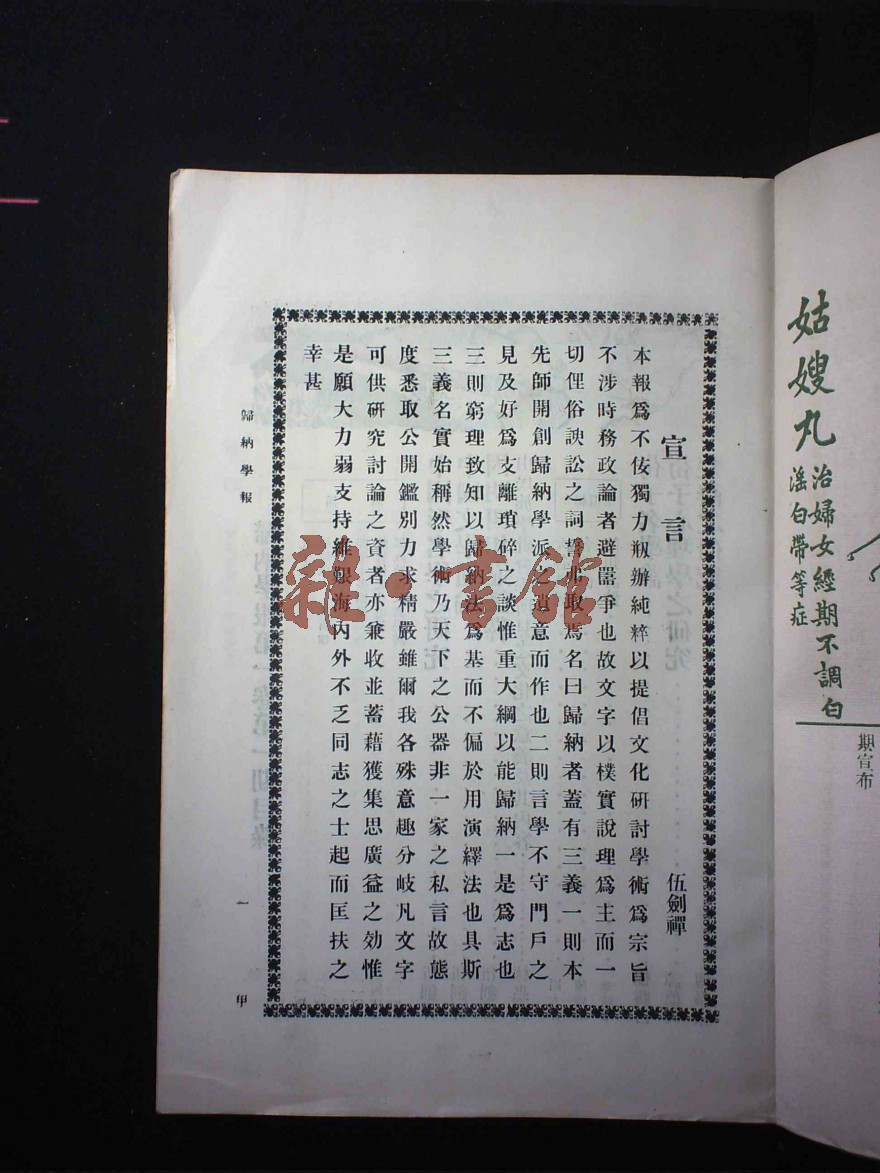 宣言
伍劍禪
本報爲不佞獨力瓶辦純粹以提倡文化研討學術爲宗旨
不涉時務政論者避嚣爭也故文字以樸實說理爲主而一
切俚俗諛訟之詞誓弗取焉名曰歸納者蓋有三義一則本
先師開創歸納學派之遺意而作也二則言學不守門戶之
見及好爲支離瑣碎之談惟重大綱以能歸納一是爲志也
三則窮理致知以歸納法爲基而不偏於用演繹法也具斯
三義名實始稱然學術乃天下之公器非一家之私言故態
度悉取公開鑑別力求精嚴雖爾我各殊意趣分岐凡文字
可供研究討論之資者亦兼收並蓄藉獲集思廣益之効惟
是願大力弱支持維艱海內外不乏同志之士起而匡扶之
幸甚
歸納學報
一
甲
雜·書館
姑嫂丸
治婦女經期不調白
滛白帶等症
期宣布